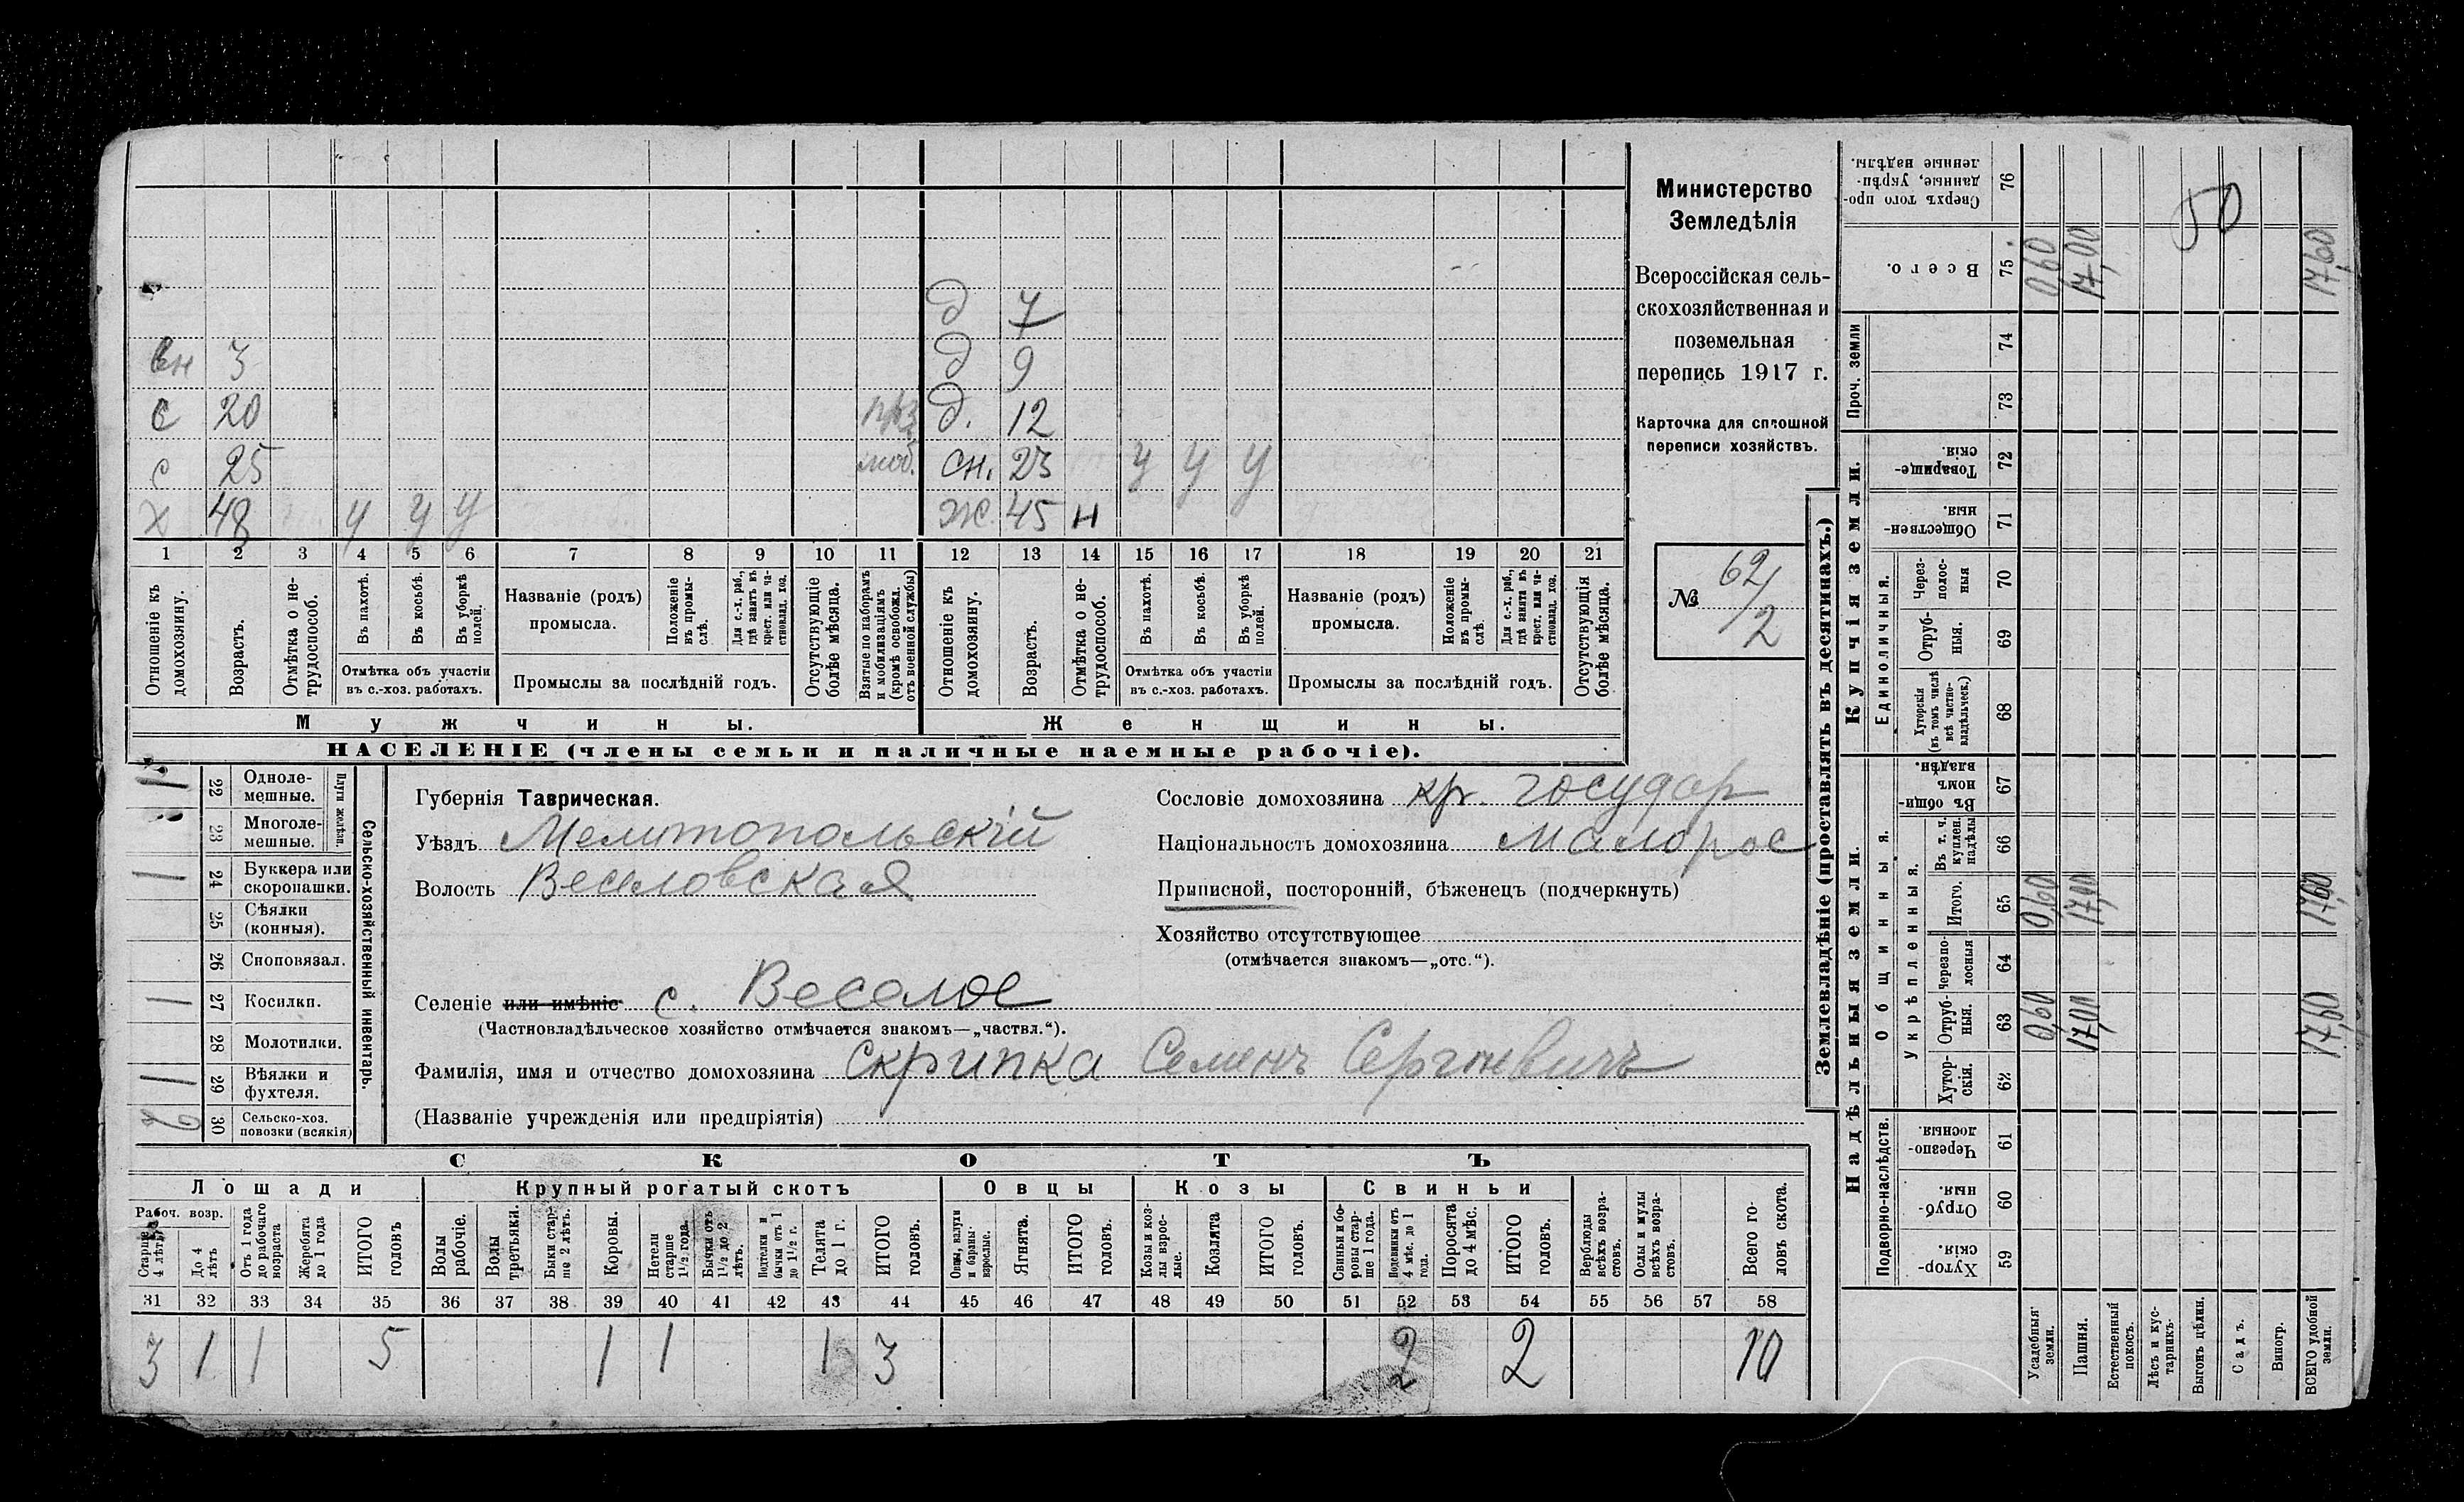 Министерство
Земледѣлія
Всероссійская сель-
скохозяйственная и
поземельная
перепись 1917 г.
Карточка для сплошной
переписи хозяйствъ.
№ 62/2
д 7
вн 3 д 9
с 20 д. 12
с 25 моб. сн. 23 у у у
х 48 у у у ж. 45 н
1 2 3 4 5 6 7 8 9 10 11 12 13 14 15 16 17 18 19 20 21
Отношеніе къ домохозяину.
Возрастъ.
Отмѣтка о не-трудоспособ.
Въ пахотѣ.
Въ косьбѣ.
Въ уборкѣ полей.
Отмѣтка объ участіи
въ с.-хоз. работахъ.
Названіе (родъ)
промысла.
Положеніе въ промы-слѣ.
Для с.-х. раб., гдѣ занятъ въ крест. или ча-стновлад. хоз.
Промыслы за послѣдній годъ.
Отсутствующіе болѣе мѣсяца.
Взятые по наборамъ и мобилизаціямъ (кромѣ освобожд. отъ военной службы)
Отношеніе къ домохозяину.
Возрастъ.
Отмѣтка о не-трудоспособ.
Въ пахотѣ.
Въ косьбѣ.
Въ уборкѣ полей.
Отмѣтка объ участіи
въ с.-хоз. работахъ.
Названіе (родъ)
промысла.
Положеніе въ промы-слѣ.
Для с.-х. раб., гдѣ занята въ крест. или ча-стновлад. хоз.
Промыслы за послѣдній годъ.
Отсутствующія болѣе мѣсяца.
Мужчины. Женщины.
НАСЕЛЕНІЕ (члены семьи и наличные наемные рабочіе).
Сельско-хозяйственный инвентарь.
Плуги желѣзн.
1 22 Одноле-мешные.
23 Многоле-мешные.
1 24 Буккера или скоропашки.
25 Сѣялки (конныя).
26 Сноповязал.
1 27 Косилки.
28 Молотилки.
1 29 Вѣялки и фухтеля.
30 Сельско-хоз. повозки (всякія)
Губернія Таврическая.
Уѣздъ Мелитопольскій
Волость Веселовская
Селеніе или имѣніе с. Веселое
(Частновладѣльческое хозяйство отмѣчается знакомъ—„частвл.“).
Фамилія, имя и отчество домохозяина Скрипка Семенъ Сергѣевичъ
(Названіе учрежденія или предпріятія)
Сословіе домохозяина кр. государ
Національность домохозяина малорос
Приписной, посторонній, бѣженецъ (подчеркнуть)
Хозяйство отсутствующее
(отмѣчается знакомъ—„отс.“).
СКОТЪ
Лошади Крупный рогатый скотъ Овцы Козы Свиньи
Рабоч. возр.
Старше 4 лѣтъ
До 4 лѣтъ
Отъ 1 года до рабочаго возраста
Жеребята до 1 года
ИТОГО головъ
Волы рабочіе.
Волы третьяки.
Быки стар-ше 2 лѣтъ.
Коровы.
Нетели старше 1½ года.
Бычки отъ 1½ до 2 лѣтъ.
Подтелки и бычки отъ 1 до 1½ г.
Телята до 1 г.
ИТОГО головъ.
Овцы, валухи и бараны взрослые.
Ягнята.
ИТОГО головъ.
Козы и коз-лы взрос-лые.
Козлята
ИТОГО головъ.
Свиньи и бо-ровы стар-ше 1 года.
Подсвинки отъ 4 мѣс. до 1 года.
Поросята до 4 мѣс.
ИТОГО головъ.
Верблюды всѣхъ возра-стовъ.
Ослы и мулы всѣхъ возра-стовъ.
Всего го-ловъ скота.
31 32 33 34 35 36 37 38 39 40 41 42 43 44 45 46 47 48 49 50 51 52 53 54 55 56 57 58
3 1 1 5 1 1 1 3 2 2 10
Землевладѣніе (проставлять въ десятинахъ.)
Надѣльныя земли. Купчія земли. Проч. земли
Подворно-наслѣдств.
Общинныя.
Укрѣпленныя.
Единоличныя.
Хутор-скія. 59
Отруб-ныя. 60
Черезпо-лосныя. 61
Хутор-скія. 62
Отруб-ныя. 63
Черезпо-лосныя 64
Итого. 65
Въ т. ч. куплен. надѣлы 66
Въ общи-номъ владѣн. 67
Хуторскія (въ томъ числѣ всѣ частно-владѣльческ.) 68
Отруб-ныя. 69
Через-полос-ныя 70
Обществен-ныя. 71
Товарище-скія. 72
73
74
Всего. 75
Сверхъ того про-данные, укрѣп-ленные надѣлы. 76
Усадебныя земли. 0,60 0,60 0,60
Пашня. 17,00 17,00 17,00
Естественный покосъ.
Лѣсъ и кус-тарникъ.
Выгонъ цѣлин.
Садъ.
Виногр.
ВСЕГО удобной земли. 17,60 17,60 17,60
50